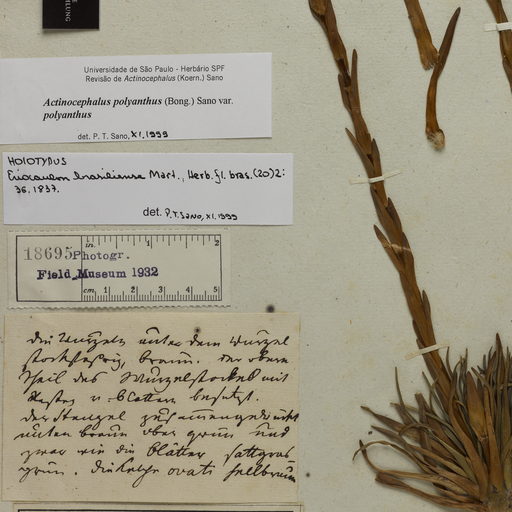 MLUNG
Universidade de São Paulo - Herbário SPF
Revisão de Actinocephalus (Koern.) Sano
Actinocephalus polyanthus (Bong.) Sano var.
polyanthus
det. P. T. Sano, XI,1999
HOLOTYPUS
Eriocaulon brasiliense Mart., Herb. fl. bras. (20) 2:
36. 1837.
det. P.T. Sano, XI.1999
18695 Photogr.
Field Museum 1932
in. 1 2
cm. 1 2 3 4 5
Die Wurzeln unter dem Wurzel
braun. der obere
Theil des Wurzelstockes mit
v. Blättern besetzt.
Der Stengel
unten braun oben grün und
zwar wie die Blätter sattgras
grün. die Kelche ovati hellbraun